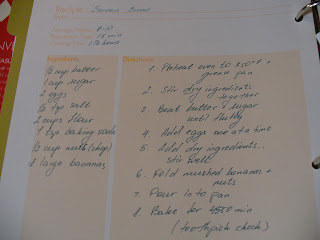 Recipe: Banana Bread
8-10
15 min
1 1/2 hours
Ingredients:
1/2 cup butter
1 cup sugar
2 eggs
1/2 tsp salt
2 cups flour
1 tsp baking soda
1/2 cup nuts (chop)
8 large bananas
Directions:
1. Preheat oven to 350°F &
grease pan
2. Stir dry ingredients
together
3. Beat butter & sugar
until fluffy
4. Add eggs one at a time
5. Add dry ingredients...
stir well
6. Fold mushed bananas &
nuts
7. Pour into pan
8. Bake for min
(toothpick check)